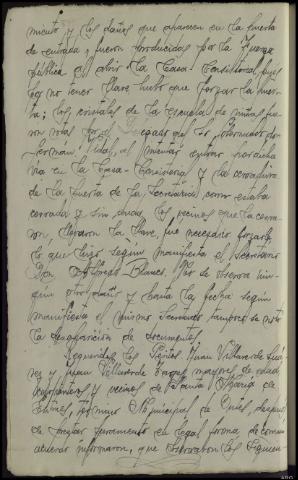 miento y los daños que aparecen en la puerta
de entrada y fueron producidos por la fuerza
pública al abrir la Casa Consistorial pues
por no tener llave hubo que forzar la puer-
ta; los cristales de la escuela de niñas fue
ron rotos por el Delegado que lo informado don
Germán Vidal, al intentar entrar por dicha
vía en la Casa Consistorial y la cerradura
de la puerta de la Secretaría, como estaba
cerrada y sin duda los vecinos que la cerra-
ron, llevaron la llave, fue necesario forzarla,
lo que hizo según manifiesta el Secretario
Don Alfredo Blanco. No se observa nin-
gún otro daño y hasta la fecha según
manifiesta el mismo Secretario tampoco se nota
la desaparición de documentos.
Requeridos los Señores Juan Villaverde Suá
rez y Juan Villaverde mayores de edad,
y vecinos de Santa María de
término municipal de después
de prestar juramento en legal forma de común
acuerdo informaron, que observaron los siguien